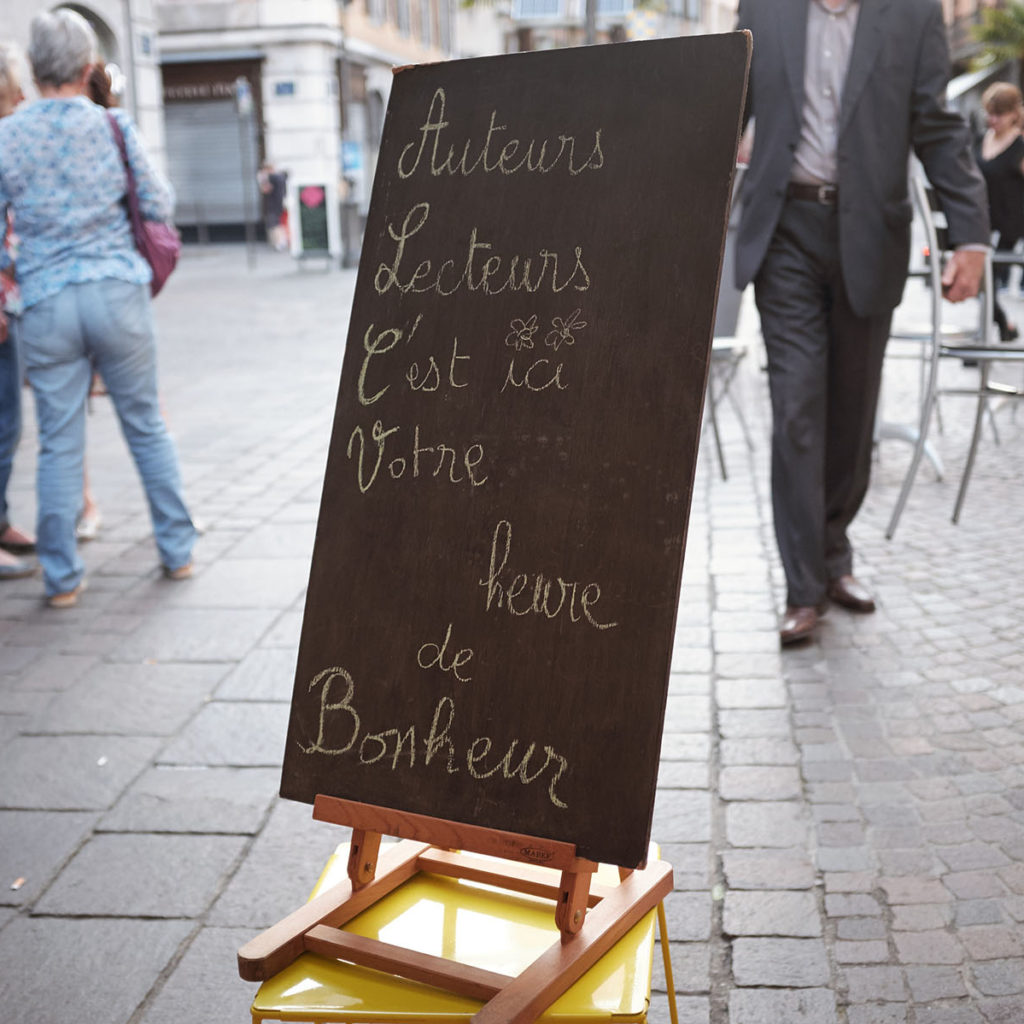 Auteurs
Lecteurs
C'est ici
Votre
heure
de
Bonheur
MABEF